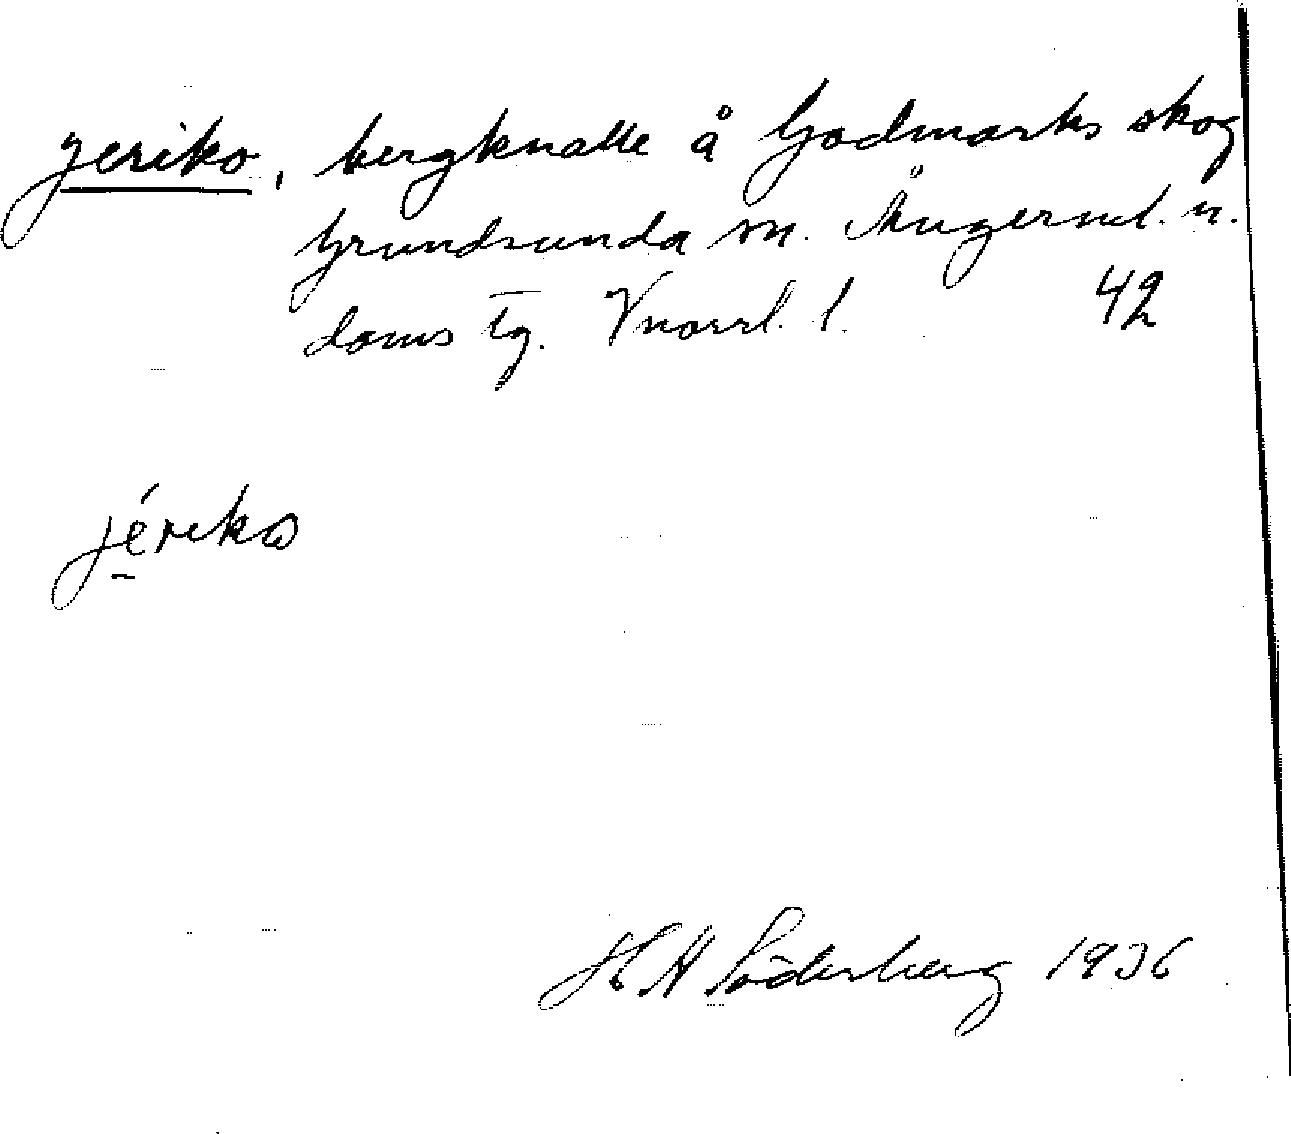 Jeriko, bergknalle å Godmarks skog
Grundsunda sn. Ångerml. n.
doms tg. Vnorrl. l. 42
jériko
H A Söderberg 1936